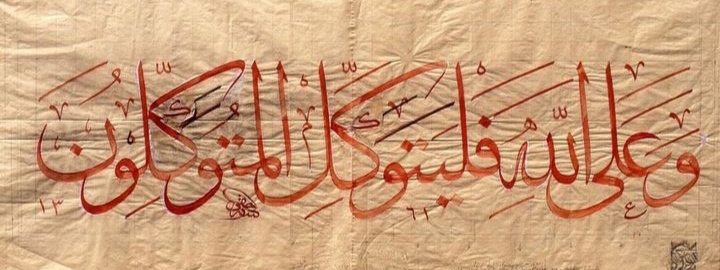 وَعَلَى اللَّهِ فَلْيَتَوَكَّلِ الْمُتَوَكِّلُونَ